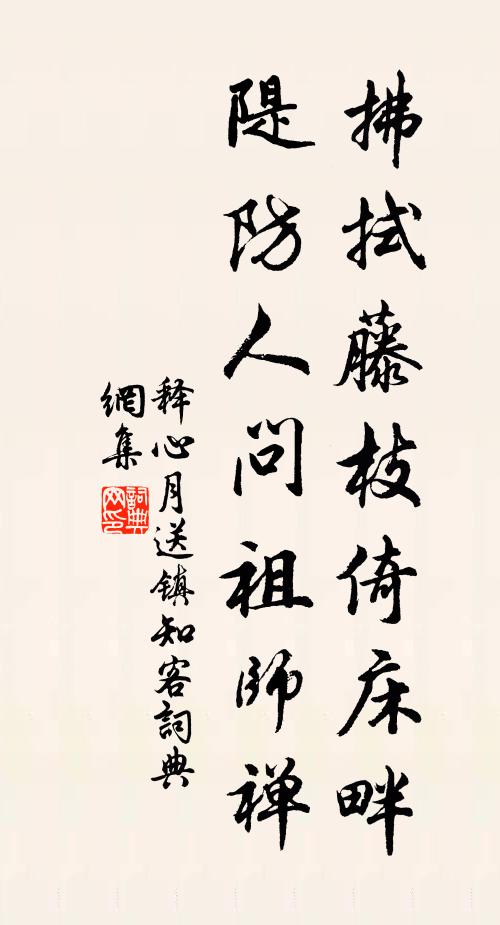 拂拭藤枝倚床畔
隄防人问祖師禅
释心月送镇知客詞典
網集
詞典网印